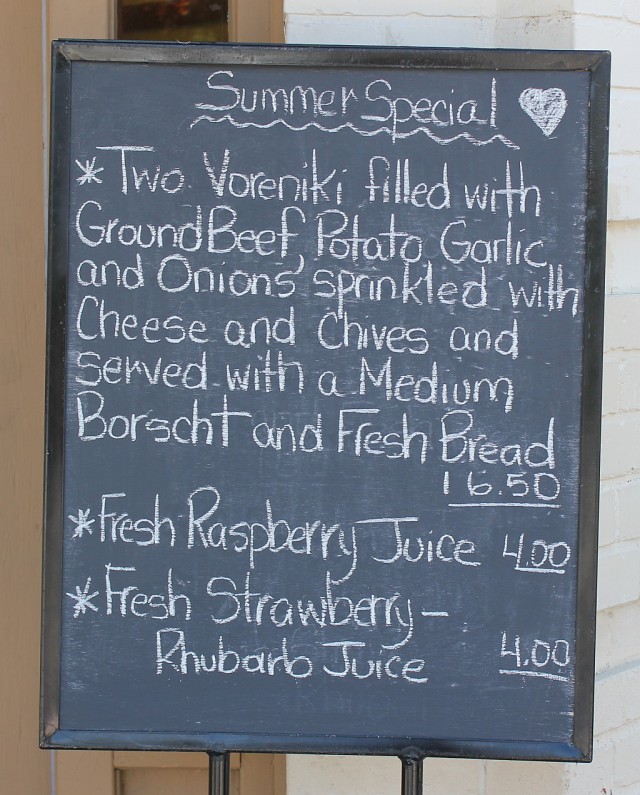 Summer Special
* Two Voreniki filled with
Ground Beef, Potato, Garlic
and Onions sprinkled with
Cheese and Chives and
served with a Medium
Borscht and Fresh Bread
16.50
* Fresh Raspberry Juice 4.00
* Fresh Strawberry-
Rhubarb Juice 4.00